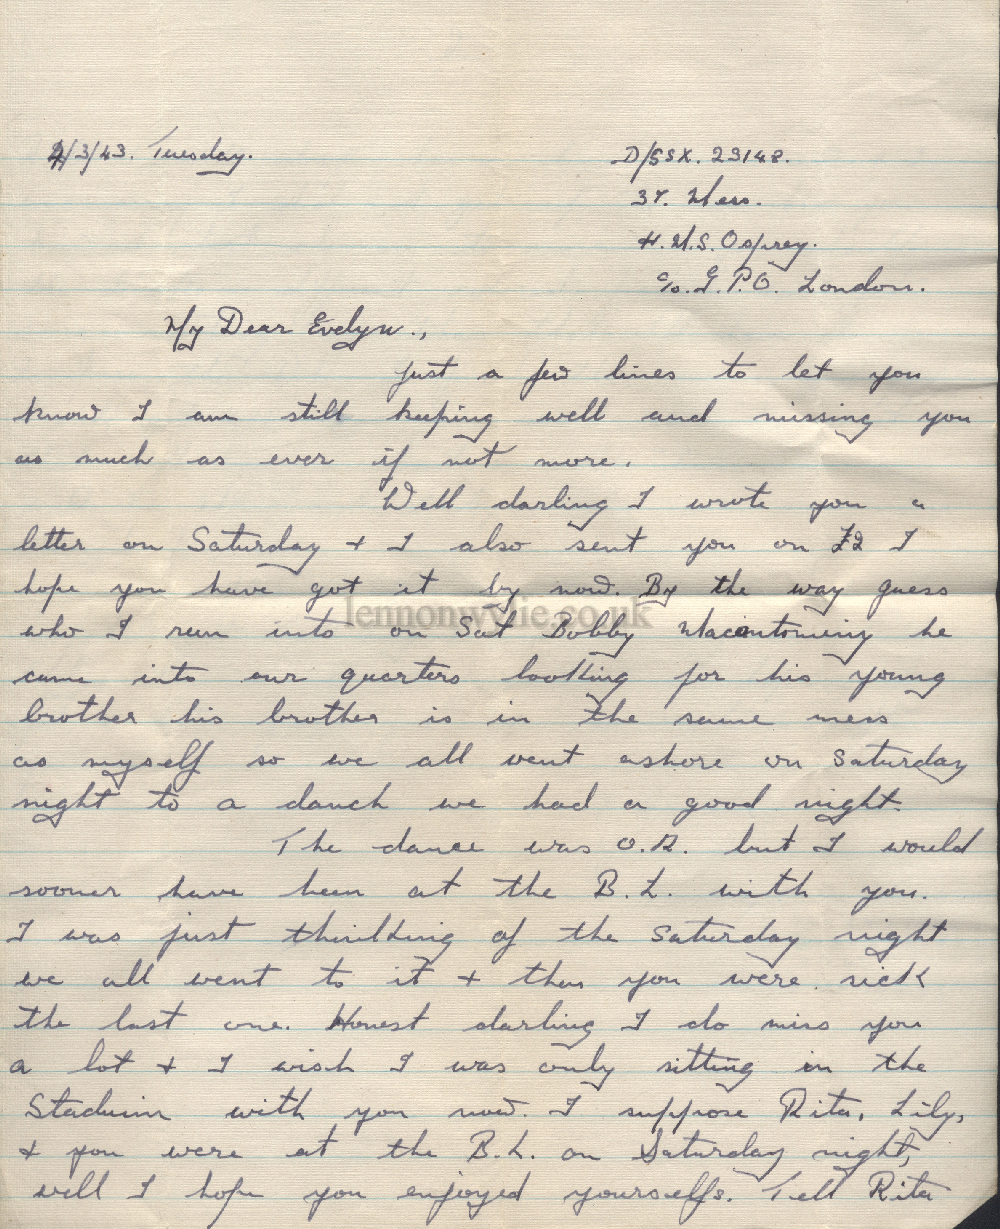 2/3/43. Tuesday.
D/SSX. 23148.
37. Mess.
H.M.S. Osprey.
c/o. G.P.O. London.
My Dear Evelyn.,
just a few lines to let you
know I am still keeping well and missing you
as much as ever if not more.
Well darling I wrote you a
letter on Saturday + I also sent you on £2 I
hope you have got it by now. By the way guess
lennonwylie.co.uk
who I run into on Sat Bobby he
came into our quarters looking for his young
brother his brother is in the same mess
as myself so we all went ashore on Saturday
night to a dance we had a good night.
The dance was O.K. but I would
sooner have been at the B.L. with you.
I was just thinking of the Saturday night
we all went to it + then you were sick
the last one. Honest darling I do miss you
a lot + I wish I was only sitting in the
Stadium with you now. I suppose Rita, Lily,
+ you were at the B.L. on Saturday night,
well I hope you enjoyed yourselfs. Tell Rita